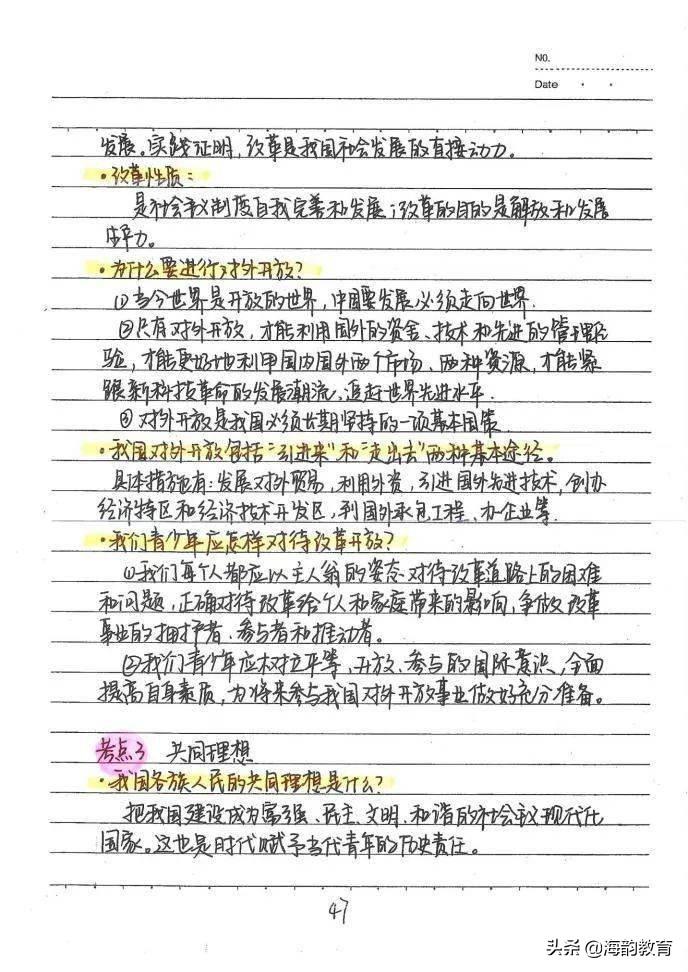 NO.
Date
发展。实践证明,改革是我国社会发展的直接动力。
·改革性质:
是社会主义制度自我完善和发展;改革的目的是解放和发展
生产力。
·为什么要进行对外开放?
①当今世界是开放的世界,中国要发展必须走向世界.
②只有对外开放,才能利用国外的资金、技术和先进的管理经
验,才能更好地利用国内国外两个市场、两种资源,才能紧
跟新科技革命的发展潮流、追赶世界先进水平.
③对外开放是我国必须长期坚持的一项基本国策.
·我国对外开放包括"引进来"和"走出去"两种基本途径。
具体措施有:发展对外贸易,利用外资,引进国外先进技术,创办
经济特区和经济技术开发区,到国外承包工程、办企业等.
·我们青少年应怎样对待改革开放?
①我们每个人都应以主人翁的姿态对待改革道路上的困难
和问题,正确对待改革给个人和家庭带来的影响,争做改革
事业的拥护者、参与者和推动者。
②我们青少年应树立平等、开放、参与的国际意识,全面
提高自身素质,为将来参与我国对外开放事业做好充分准备。
考点3 共同理想
·我国各族人民的共同理想是什么?
把我国建设成为富强、民主、文明、和谐的社会主义现代化
国家。这也是时代赋予当代青年的历史责任。
47
头条@海韵教育